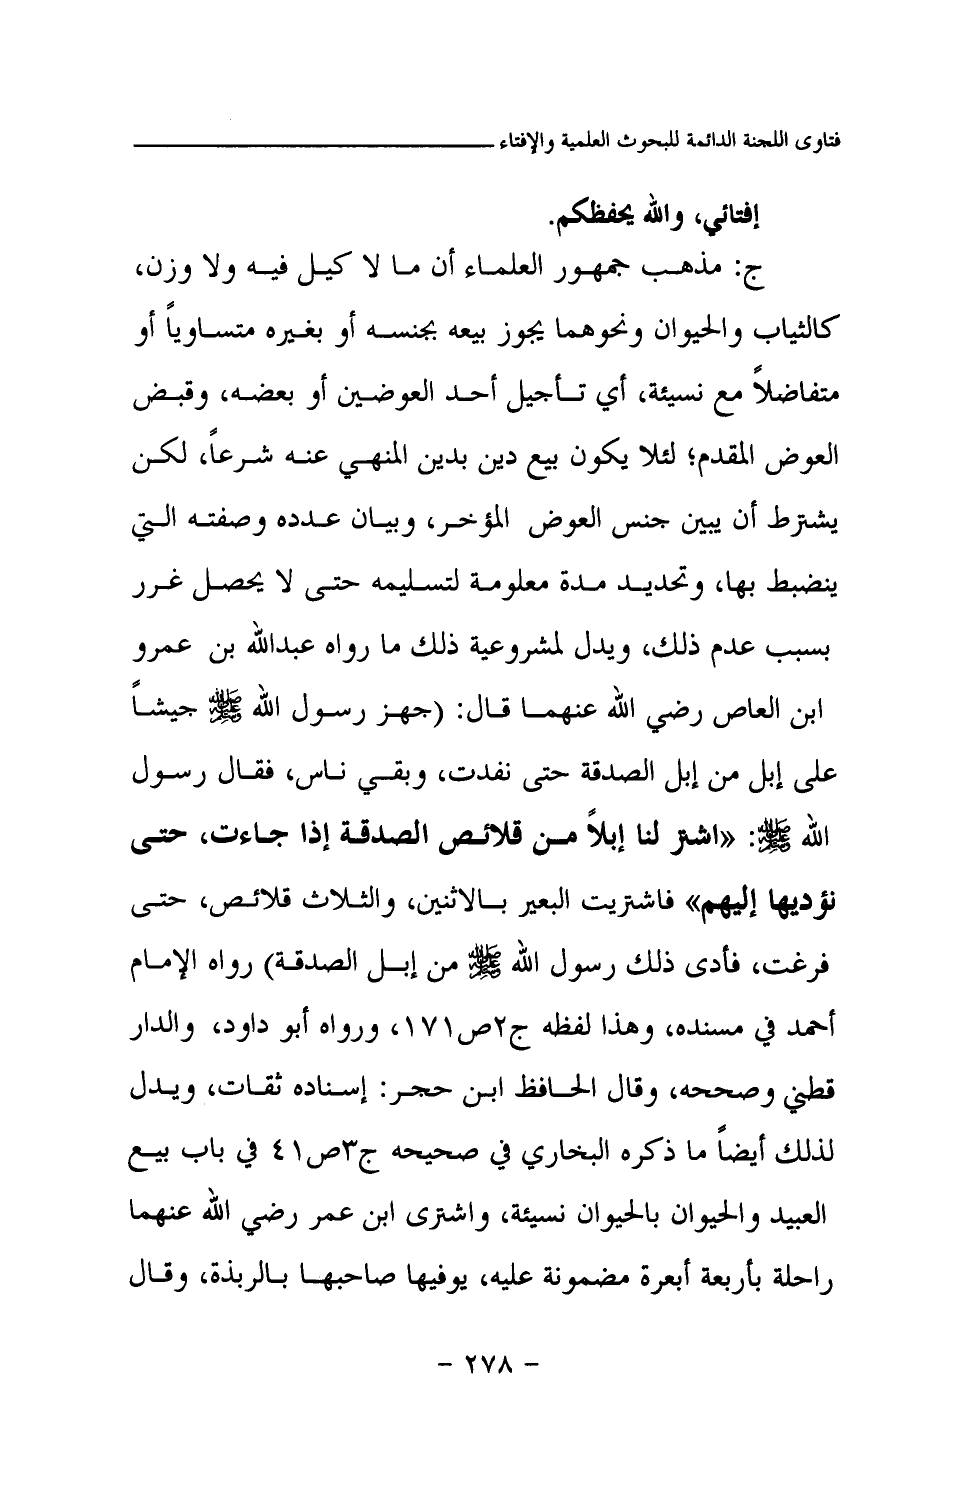 فتاوى اللجنة الدائمة للبحوث العلمية والإفتاء
إفتائي، والله يحفظكم.
ج: مذهب جمهور العلماء أن ما لا كيل فيه ولا وزن،
كالثياب والحيوان ونحوهما يجوز بيعه بجنسه أو بغيره متساوياً أو
متفاضلاً مع نسيئة، أي تأجيل أحد العوضين أو بعضه، وقبض
العوض المقدم؛ لئلا يكون بيع دين بدين المنهي عنه شرعاً، لكن
يشترط أن يبين جنس العوض المؤخر، وبيان عدده وصفته التي
ينضبط بها، وتحديد مدة معلومة لتسليمه حتى لا يحصل غرر
بسبب عدم ذلك، ويدل لمشروعية ذلك ما رواه عبدالله بن عمرو
ابن العاص رضي الله عنهما قال: (جهز رسول الله ﷺ جيشاً
على إبل من إبل الصدقة حتى نفدت، وبقي ناس، فقال رسول
الله ﷺ: «اشتر لنا إبلاً من قلائص الصدقة إذا جاءت، حتى
نؤديها إليهم» فاشتريت البعير بالاثنين، والثلاث قلائص، حتى
فرغت، فأدى ذلك رسول الله ﷺ من إبل الصدقة) رواه الإمام
أحمد في مسنده، وهذا لفظه ج٢ص١٧١، ورواه أبو داود، والدار
قطني وصححه، وقال الحافظ ابن حجر: إسناده ثقات، ويدل
لذلك أيضاً ما ذكره البخاري في صحيحه ج٣ص٤١ في باب بيع
العبيد والحيوان بالحيوان نسيئة، واشترى ابن عمر رضي الله عنهما
راحلة بأربعة أبعرة مضمونة عليه، يوفيها صاحبها بالربذة، وقال
- ٢٧٨ -